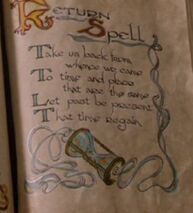 Return
Spell
Take us back from
whence we came
To time and place
that are the same
Let past be present
That time regain